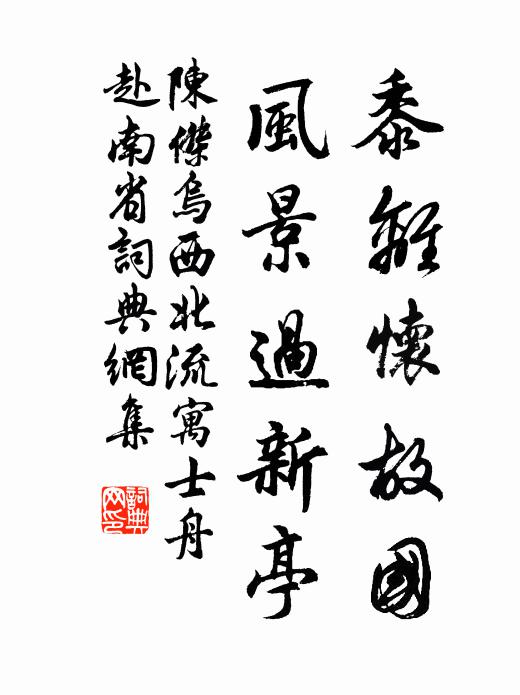 黍離懷故國
風景過新亭
陳傑烏西北流寓士舟
赴南省詞典網集
詞典
网印